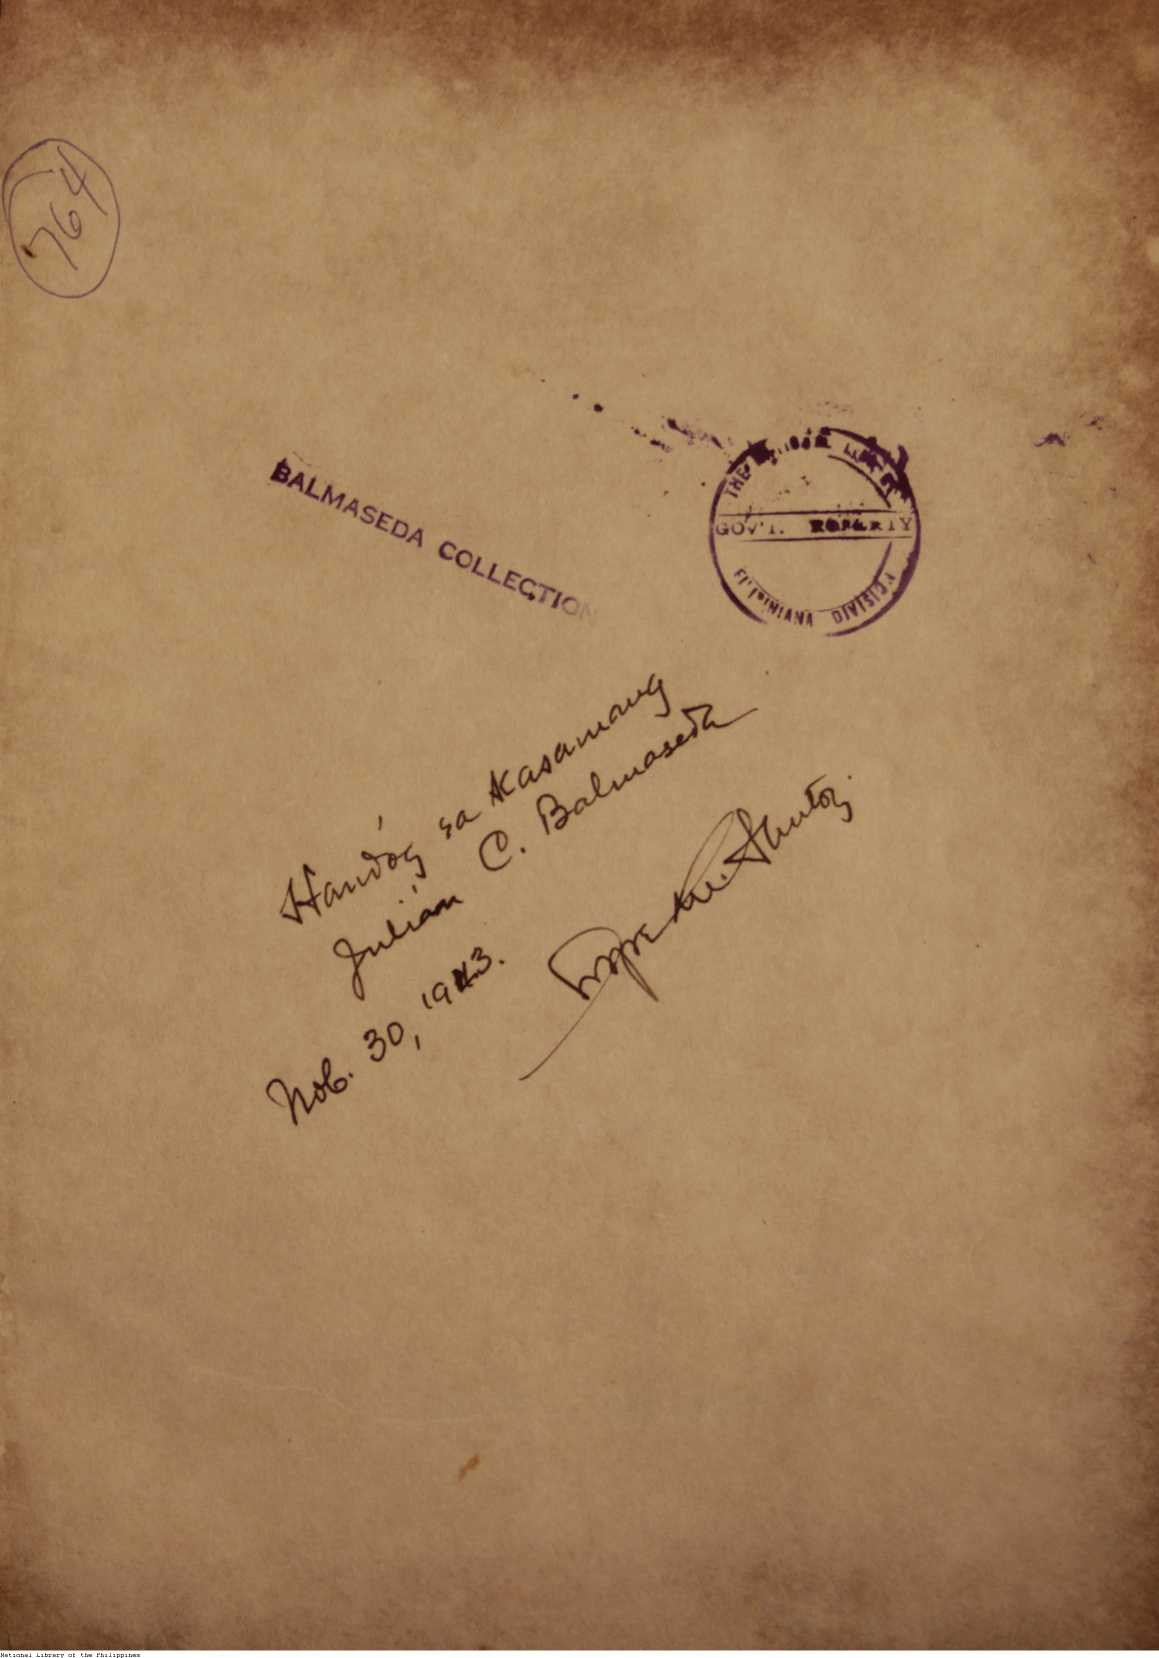 764
BALMASEDA COLLECTION
THE NATIONAL LIBRARY
GOV'T. PROPERTY
FILIPINIANA DIVISION
Handóg sa kasamang
Julián C. Balmaseda
Santos
Nob. 30, 1943.
National Library of the Philippines